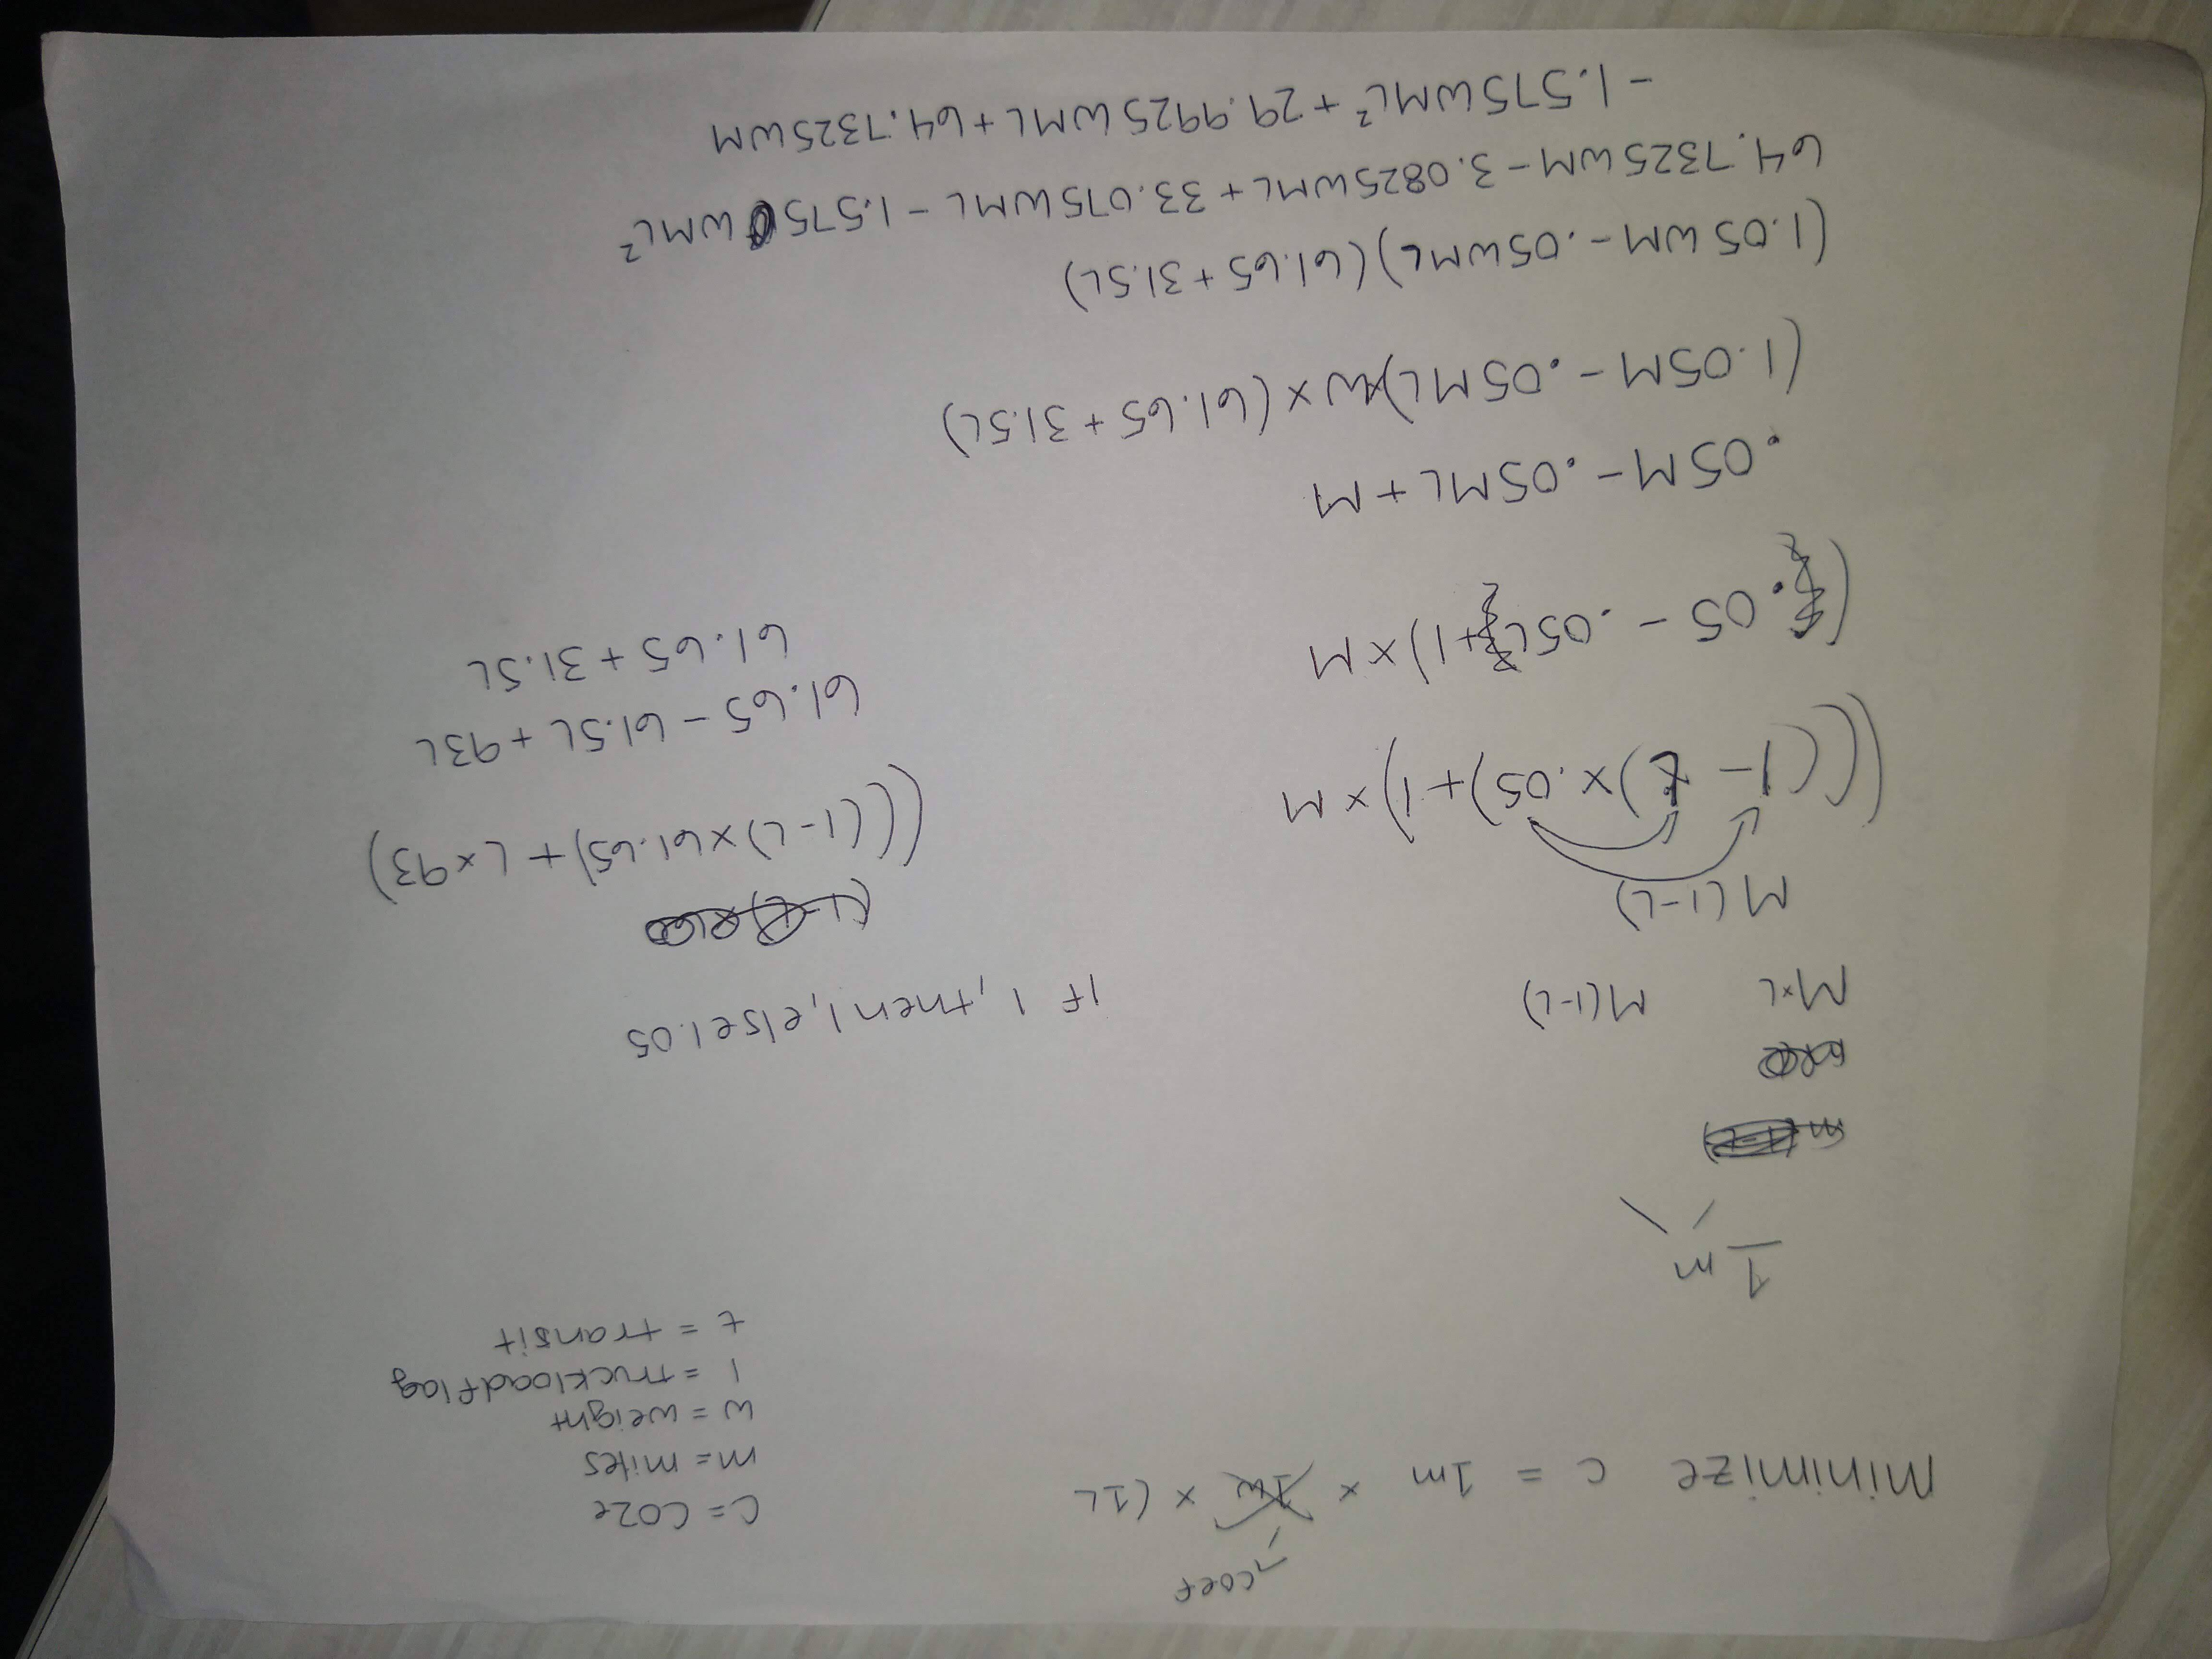 coef
minimize c = 1m × 1w × (1L
C = CO2e
m = miles
w = weight
l = truckloadflag
t = transit
1m
M×L M(1-L)
If 1, then 1, else 1.05
M(1-L)
(((1-L)×.05)+1)×M
(((1-L)×61.65)+L×93)
61.65 - 61.5L + 93L
61.65 + 31.5L
(.05 - .05L+1)×M
.05M - .05ML + M
(1.05M - .05ML)×W×(61.65+31.5L)
(1.05WM - .05WML)(61.65+31.5L)
64.7325WM - 3.0825WML + 33.075WML - 1.575WML²
-1.575WML² + 29.9925WML + 64.7325WM